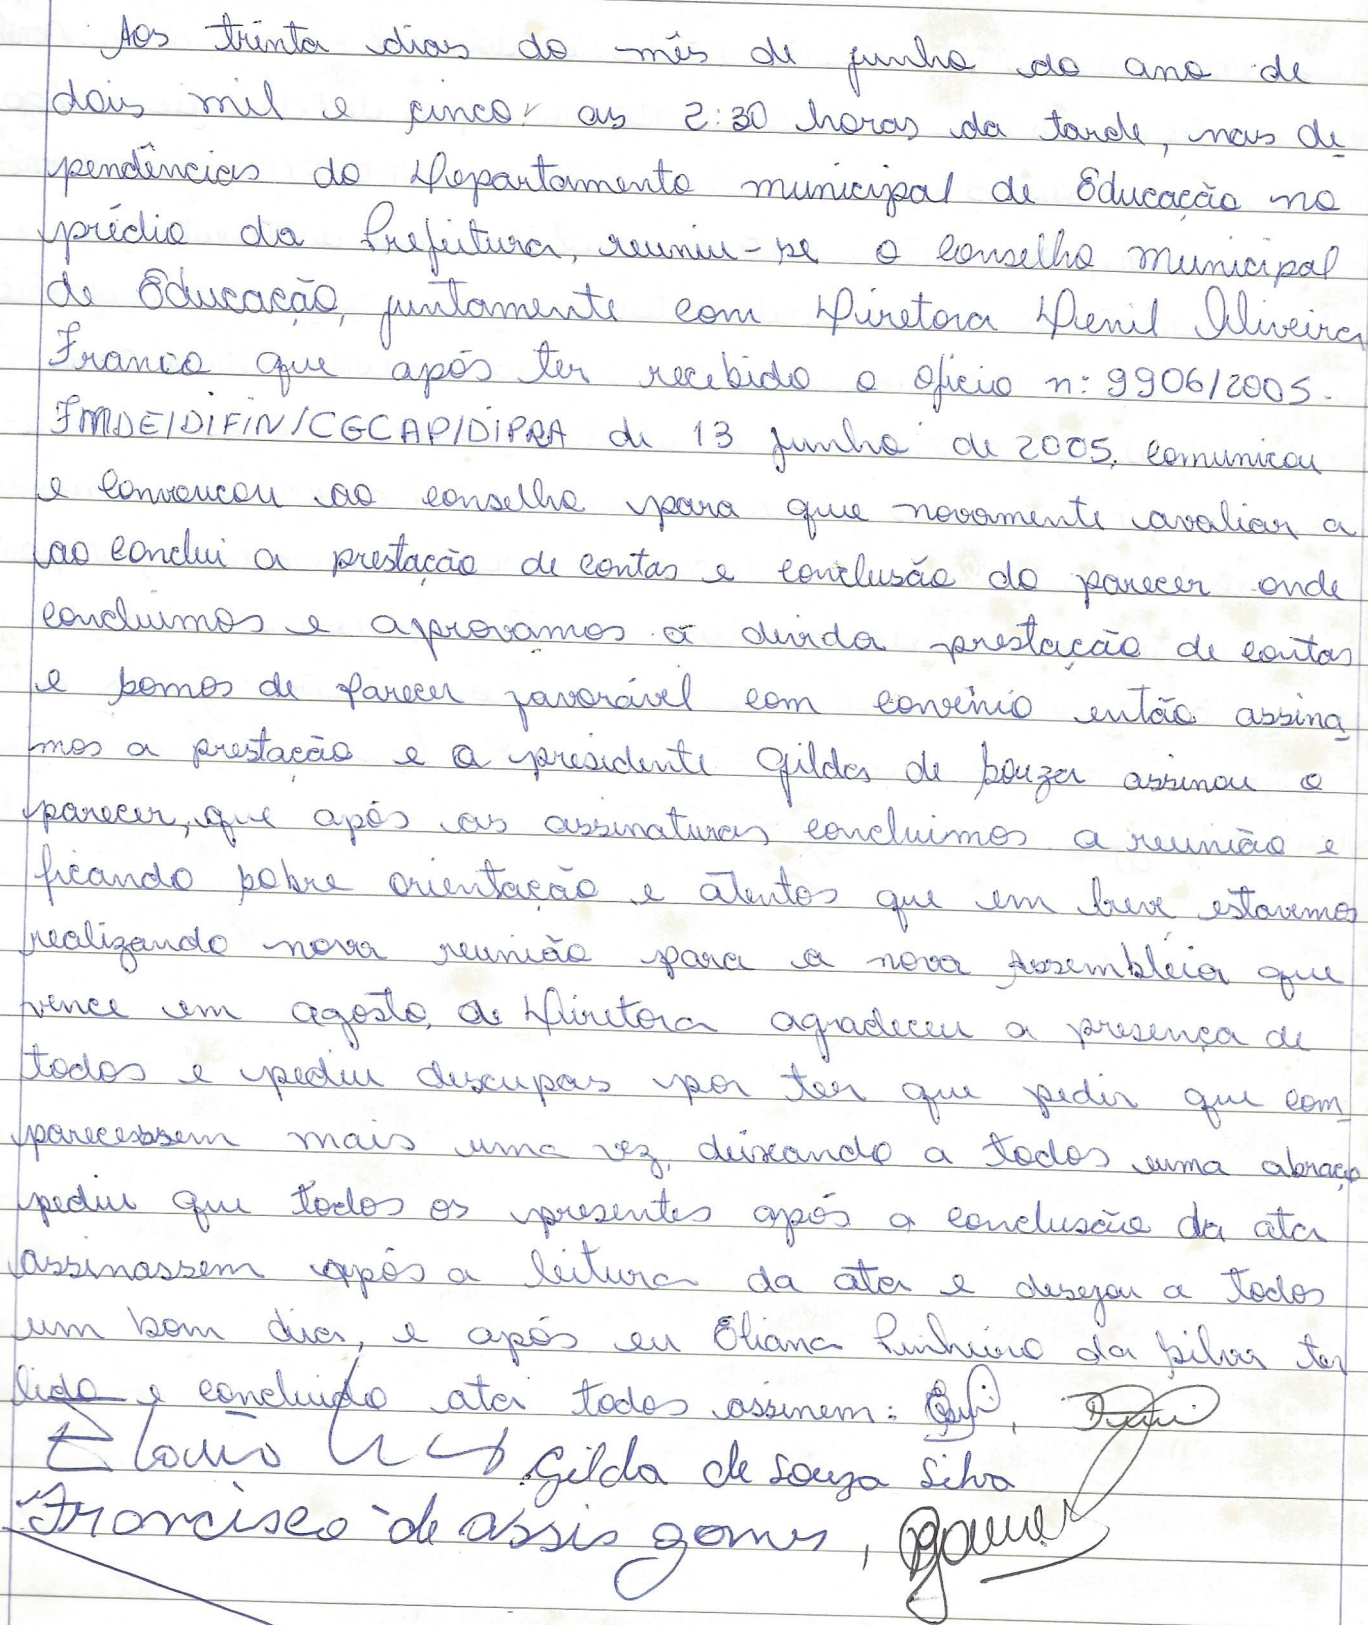 Aos trinta dias do mês de junho do ano de
dois mil e cinco as 2:30 horas da tarde, nas de
pendências do Departamento municipal de Educação no
prédio da Prefeitura, reuniu-se o Conselho Municipal
de Educação, juntamente com Diretora Denil Oliveira
Franco que após ter recebido o oficio n: 9906/2005.
FMDE/DIFIN/CGCAP/DIPRA de 13 junho de 2005. Comunicou
e Convoucou ao conselho para que novamente avaliar a
ao conclui a prestação de contas e conclusão do parecer onde
concluimos e aprovamos a devida prestação de contas
e somos de Parecer favorável com convênio então assina
mos a prestação e a presidente Gilda de Souza assinou o
parecer, que após as assinaturas concluimos a reunião e
ficando sobre orientação e atentos que em breve estavemos
realizando nova reunião para a nova Assembléia que
vence em agosto, de Diretora agradeceu a presença de
todos e pediu descupas por ter que pedir que com
parecessem mais uma vez, deixando a todos uma abraço
pediu que todos os presentes após a conclusão da ata
assinassem após a leitura da ata e desejou a todos
um bom dia, e após eu Eliana Pinheiro da Silva ter
lido e concluido ata todos assinem:
Gilda de Souza Silva
Francisco de assis gomes,